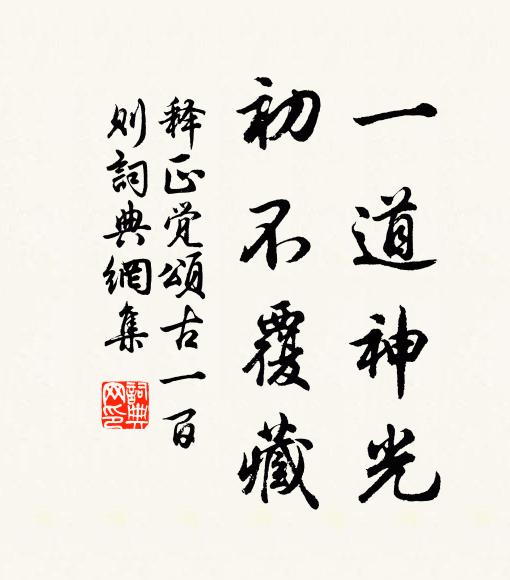 一道神光
初不覆藏
释正觉颂古一百
则詞典網集
詞典
网印